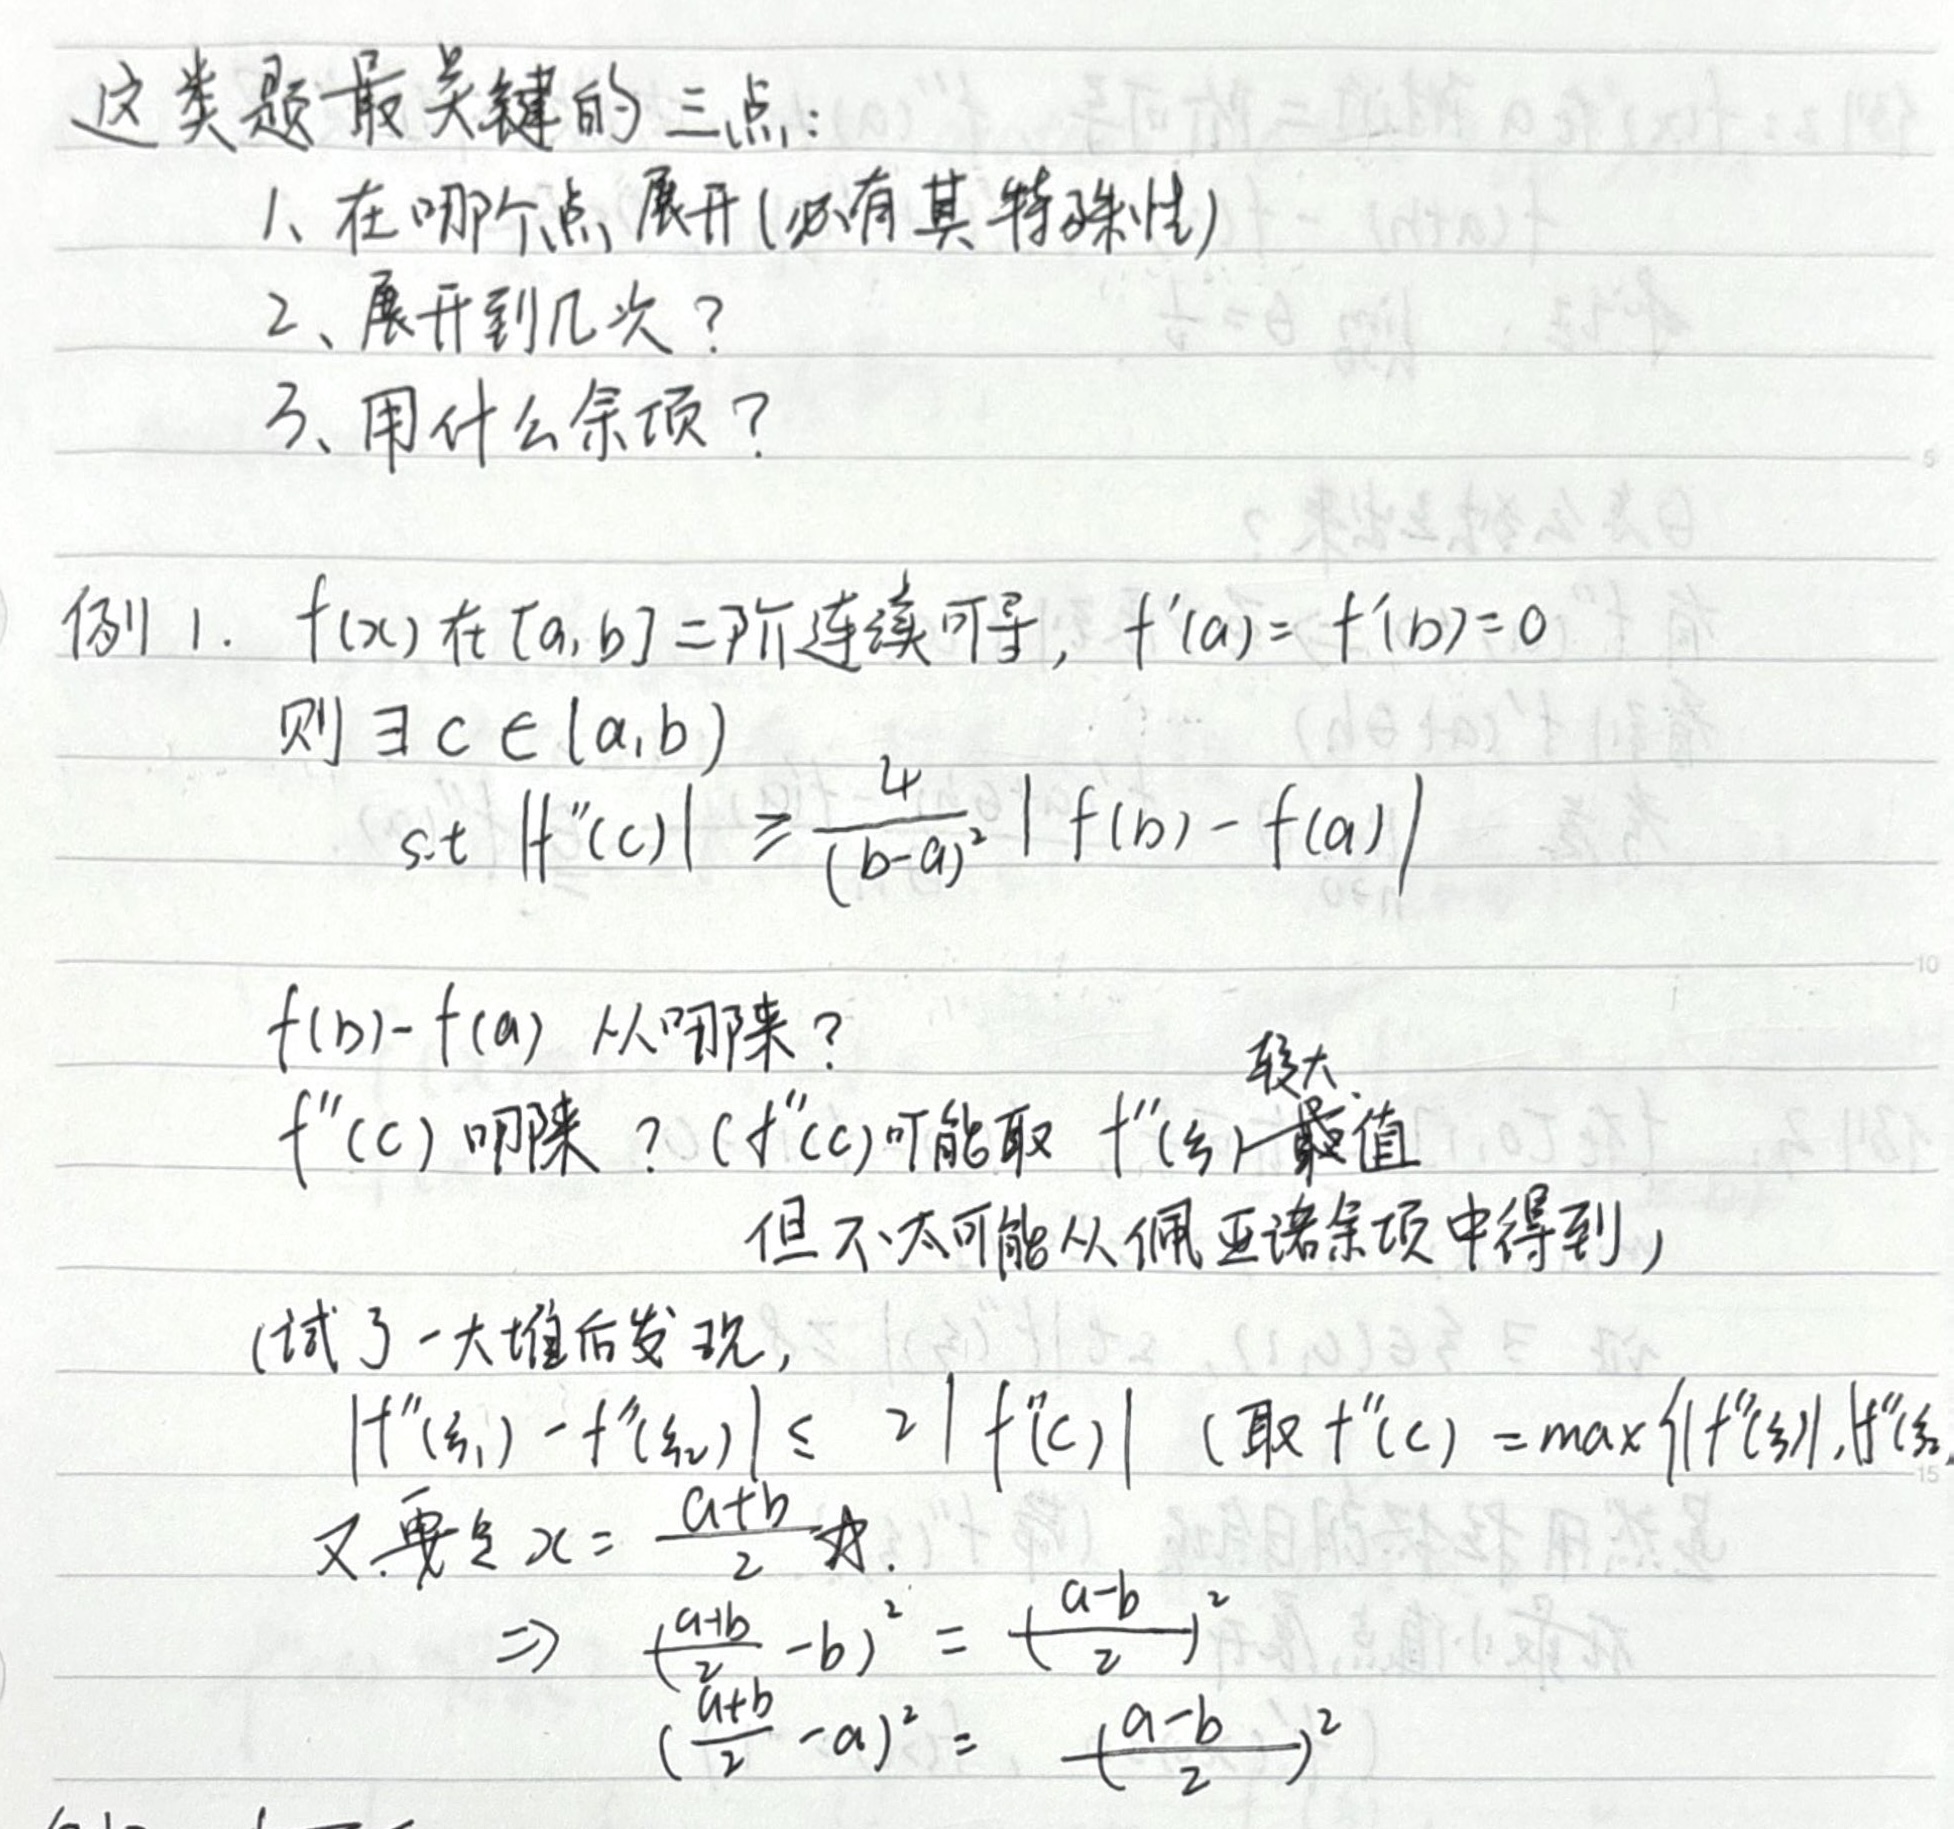 这类题最关键的三点:
1、在哪个点展开(必有其特殊性)
2、展开到几次?
3、用什么余项?
例1. f(x)在[a,b]二阶连续可导, f'(a)=f'(b)=0
则∃c∈(a,b)
s.t |f''(c)| ≥ 4/(b-a)² |f(b)-f(a)|
f(b)-f(a) 从哪来?
较大
f''(c) 哪来?(f''(c)可能取 f''(ξ) 最值
但不太可能从佩亚诺余项中得到)
(试了一大堆后发现,
|f''(ξ₁)-f''(ξ₂)| ≤ 2|f''(c)| (取f''(c)=max{|f''(ξ)|,|f''(ξ₂
又要令 x= (a+b)/2 ☆.
⇒ ((a+b)/2 -b)² = ((a-b)/2)²
((a+b)/2 -a)² = ((a-b)/2)²